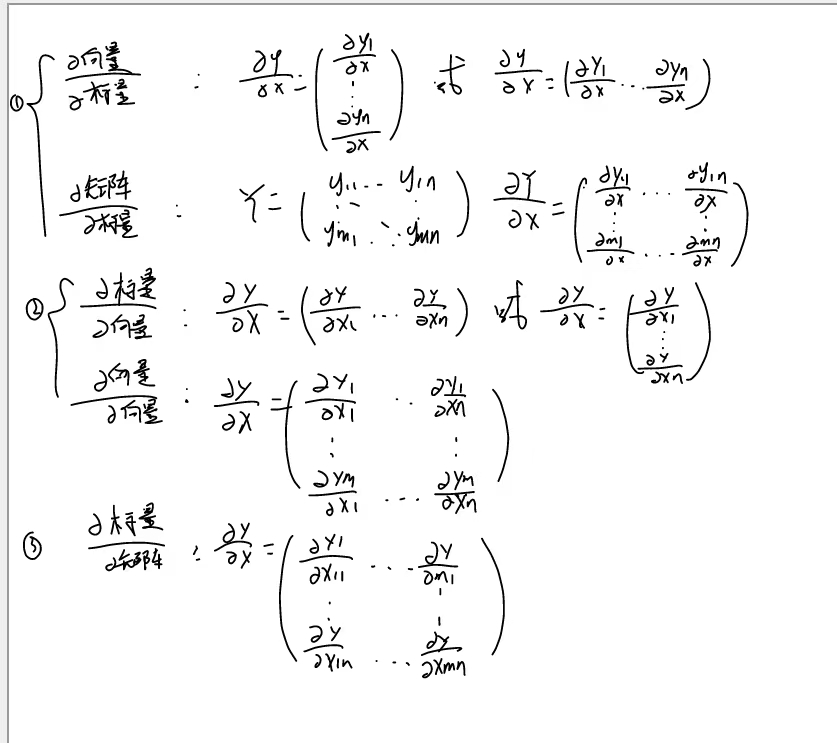 ① ∂向量/∂标量 : ∂y/∂x = (∂y1/∂x ⋮ ∂yn/∂x) 或 ∂y/∂x = (∂y1/∂x ... ∂yn/∂x)
∂矩阵/∂标量 : Y = (y11 ... y1n ⋮ ⋱ ⋮ ym1 ... ymn) ∂Y/∂x = (∂y11/∂x ... ∂y1n/∂x ⋮ ⋮ ∂m1/∂x ... ∂mn/∂x)
② ∂标量/∂向量 : ∂y/∂x = (∂y/∂x1 ... ∂y/∂xn) 或 ∂y/∂x = (∂y/∂x1 ⋮ ∂y/∂xn)
∂向量/∂向量 : ∂y/∂x = (∂y1/∂x1 ... ∂y1/∂xn ⋮ ⋮ ∂ym/∂x1 ... ∂ym/∂xn)
③ ∂标量/∂矩阵 : ∂y/∂x = (∂y1/∂x11 ... ∂y/∂m1 ⋮ ⋮ ∂y/∂x1n ... ∂y/∂xmn)